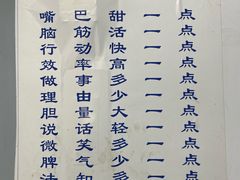 嘴巴甜一点
脑筋活一点
行动快一点
效率高一点
做事多一点
理由少一点
胆量大一点
说话轻一点
微笑多一点
脾气少一点